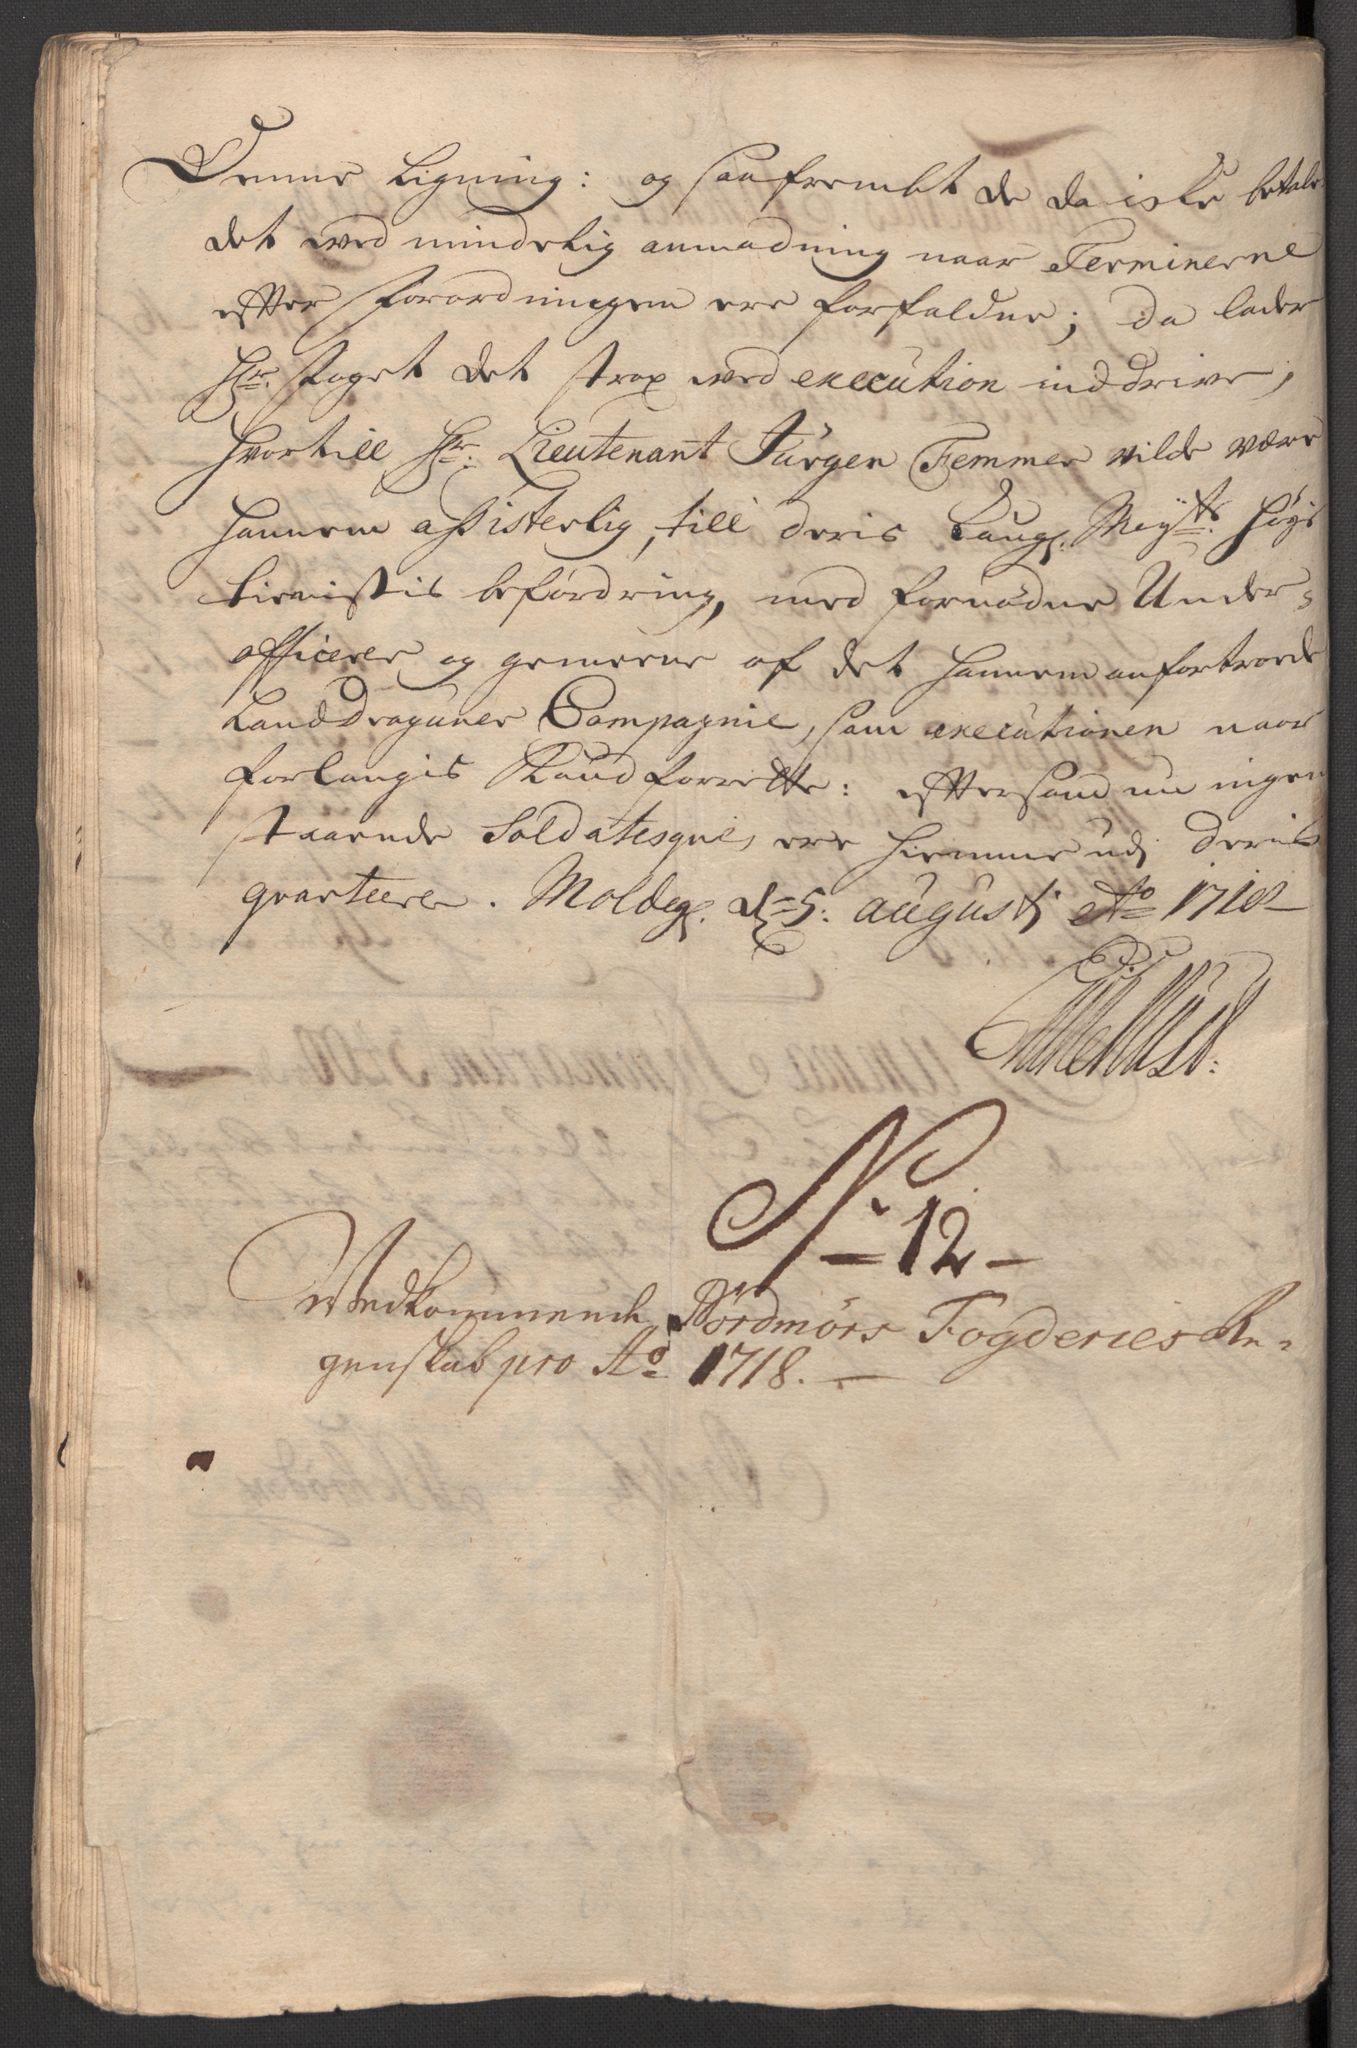 Denne Ligning: og saafrembt de da iche betale
det ved mindelig anmodning naar Terminerne
efter Forordningen ere forfaldne; da lader
Hr. Foget det strax ved execution inddrive,
hvortill Hr: Lieutenant Jürgen Femmer vilde være
hannem assisterlig, till deris Kongl. Mayts: Høye
tienistis befordring, med fornødne Under-
officerer og gemeene af det hannem anfortroede
Landdraguner Compagnie, som executionen naar
forlangis Kand forrette: eftersom nu ingen
staaende Soldatesque, ere hiemme udj deris
qvarteere. Molde d: 5: augustj Ao 1718

No 12
Vedkommende Nordmørs Fogderies Re-
genskab pro Ao 1718.